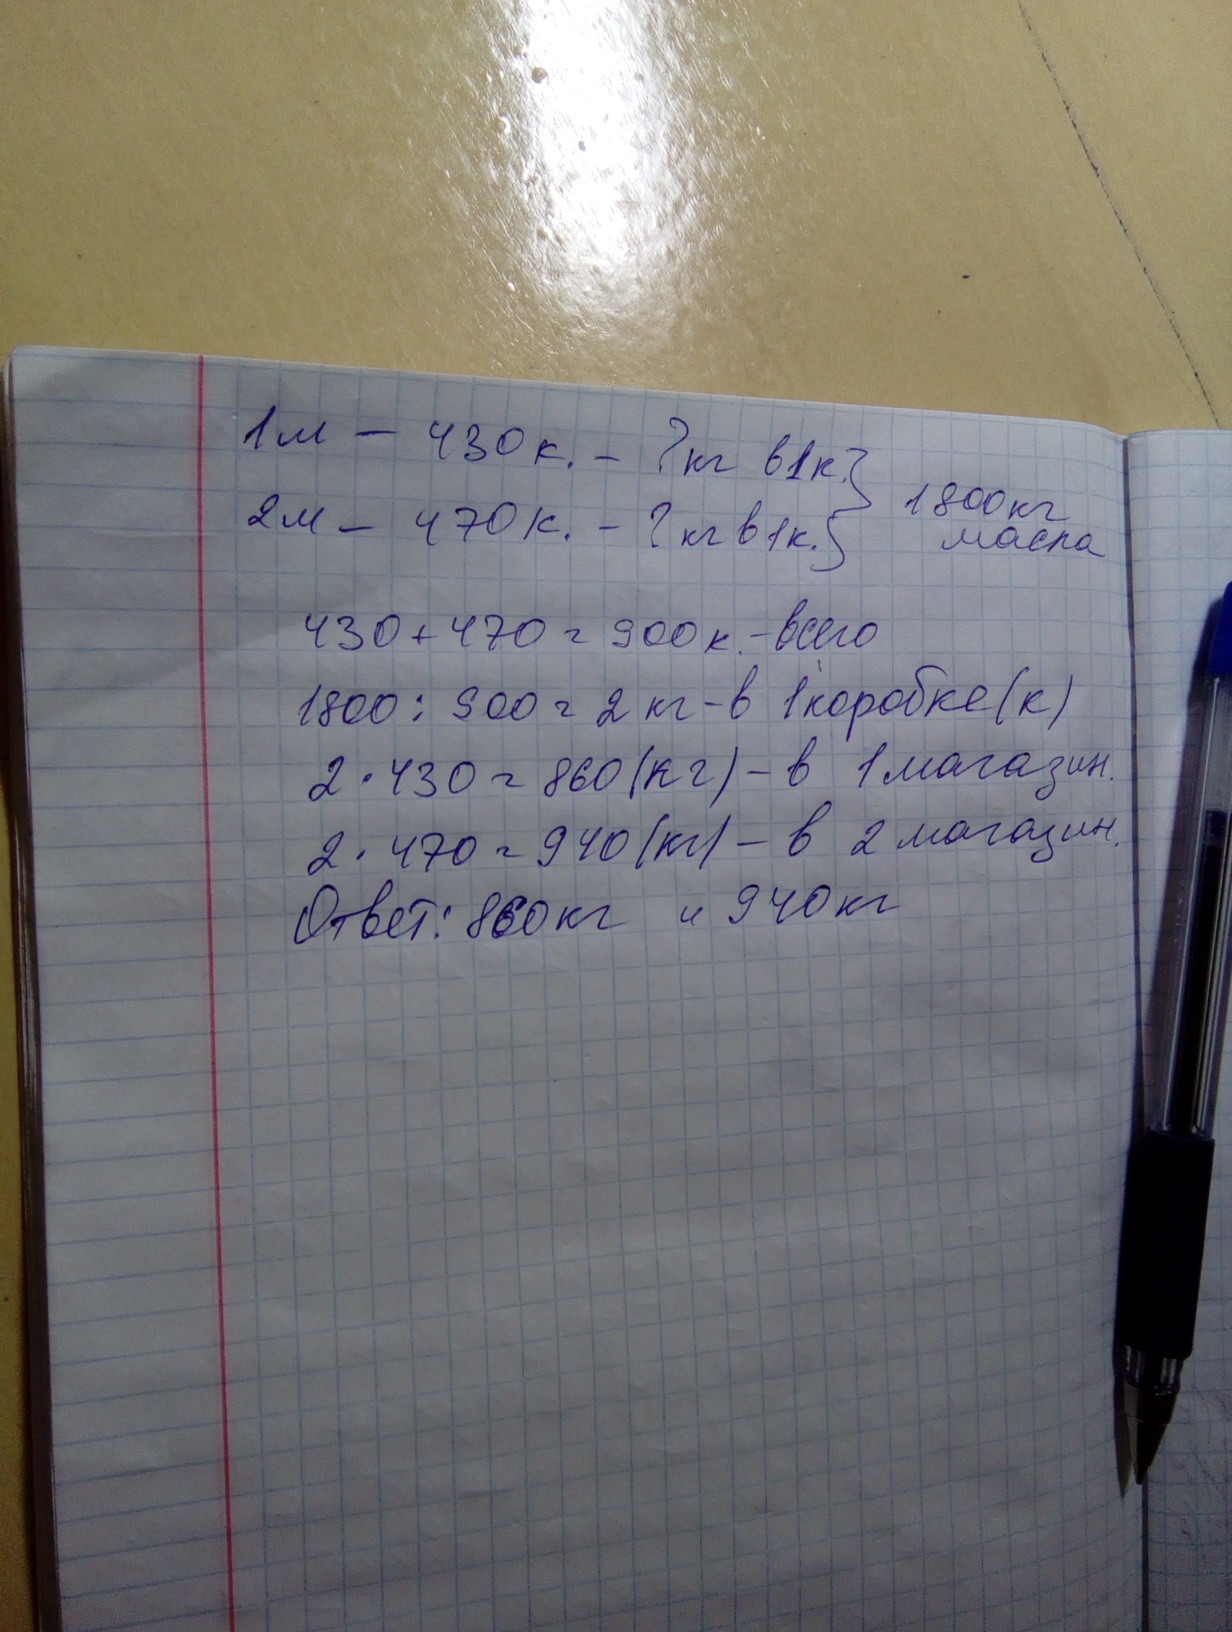 1м - 430 к. - ? кг в 1к. } 1800 кг
2м - 470 к. - ? кг в 1к. } масла
430 + 470 = 900 к. - всего
1800 : 900 = 2 кг - в 1 коробке (к)
2 · 430 = 860 (кг) - в 1 магазин.
2 · 470 = 940 (кг) - в 2 магазин.
Ответ: 860 кг и 940 кг